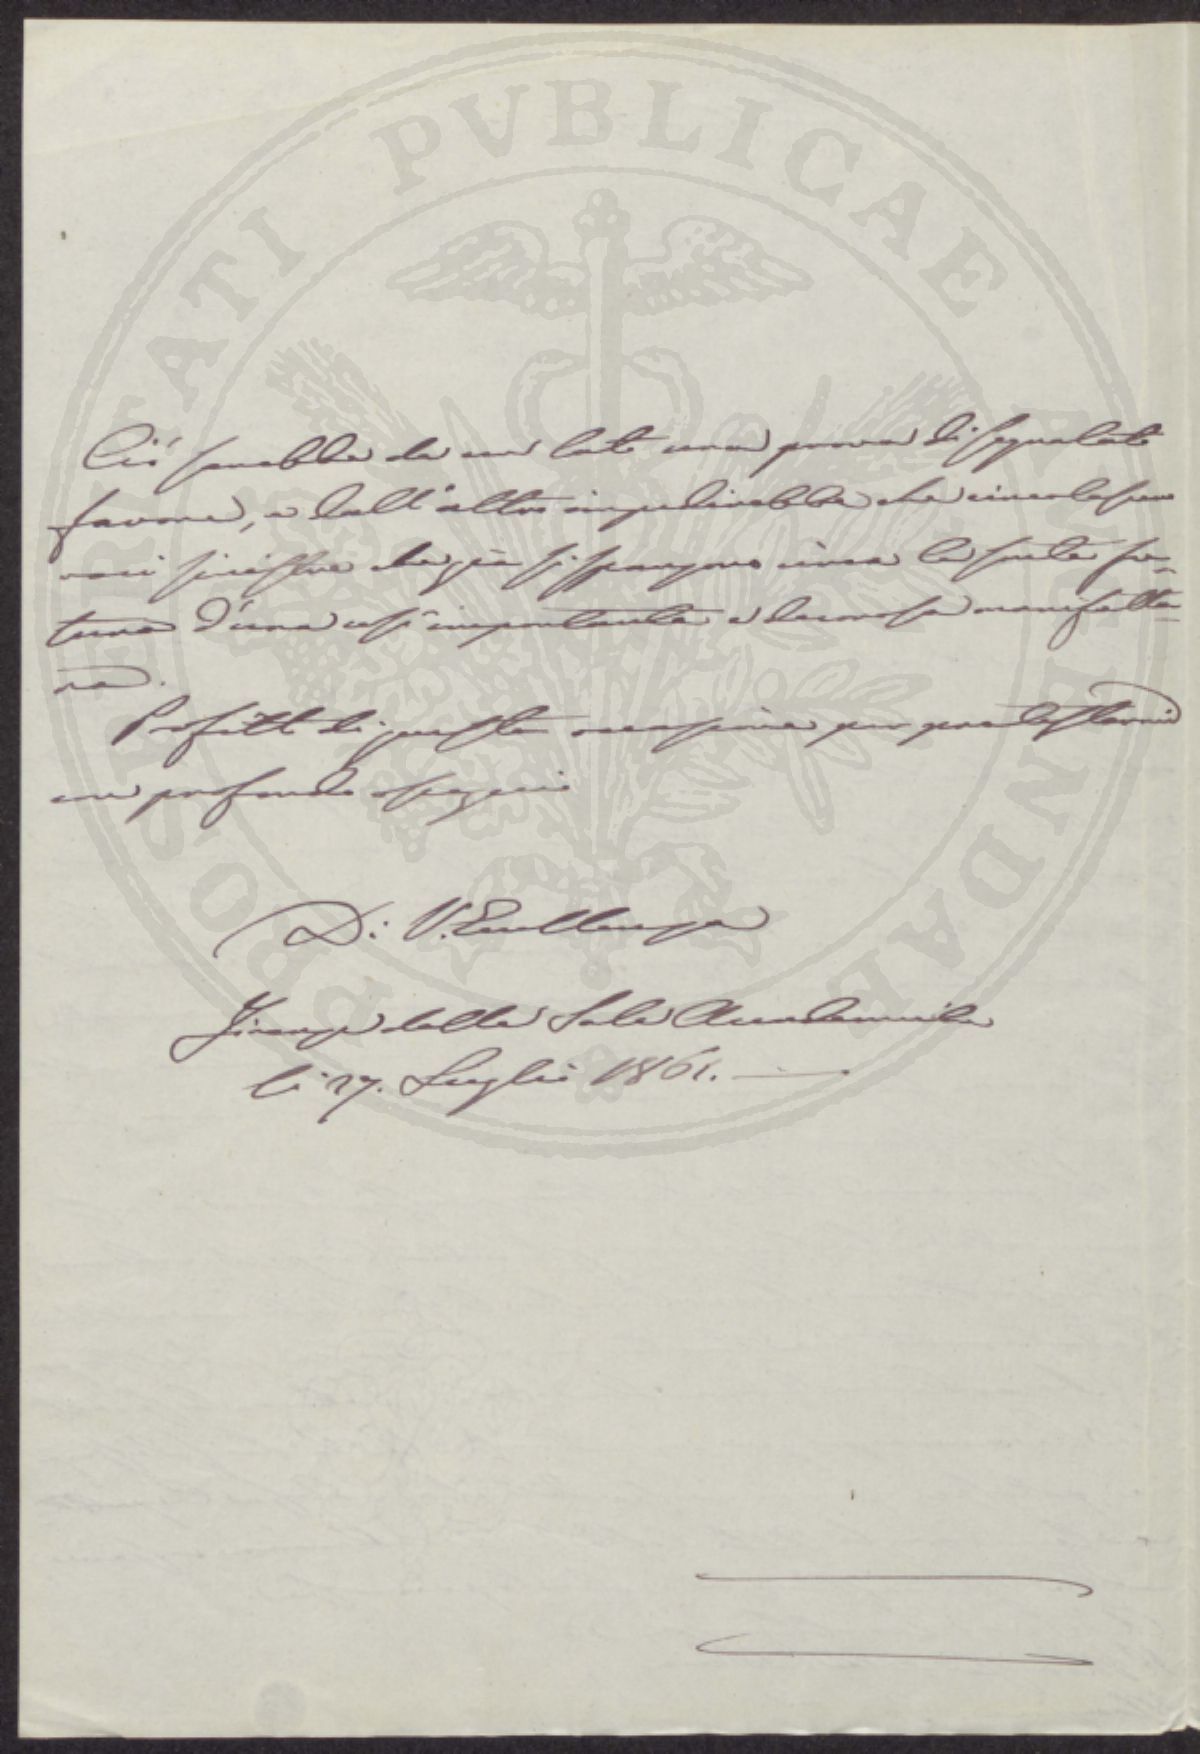 Ciò sarebbe da un lato una prova di segnalato
favore, e dall'altro impedirebbe che circolassero
voci sinistre che già si spargono circa la sorte fu-
tura d'una così importante e decorosa manifattu-
ra.
Profitto di questa occasione per protestarmi
con profondo ossequio
D: V. Eccellenza
Firenze dalla Sala Accademica
li 27. Luglio 1861.
PROSPERITATI PVBLICAE AVGENDAE